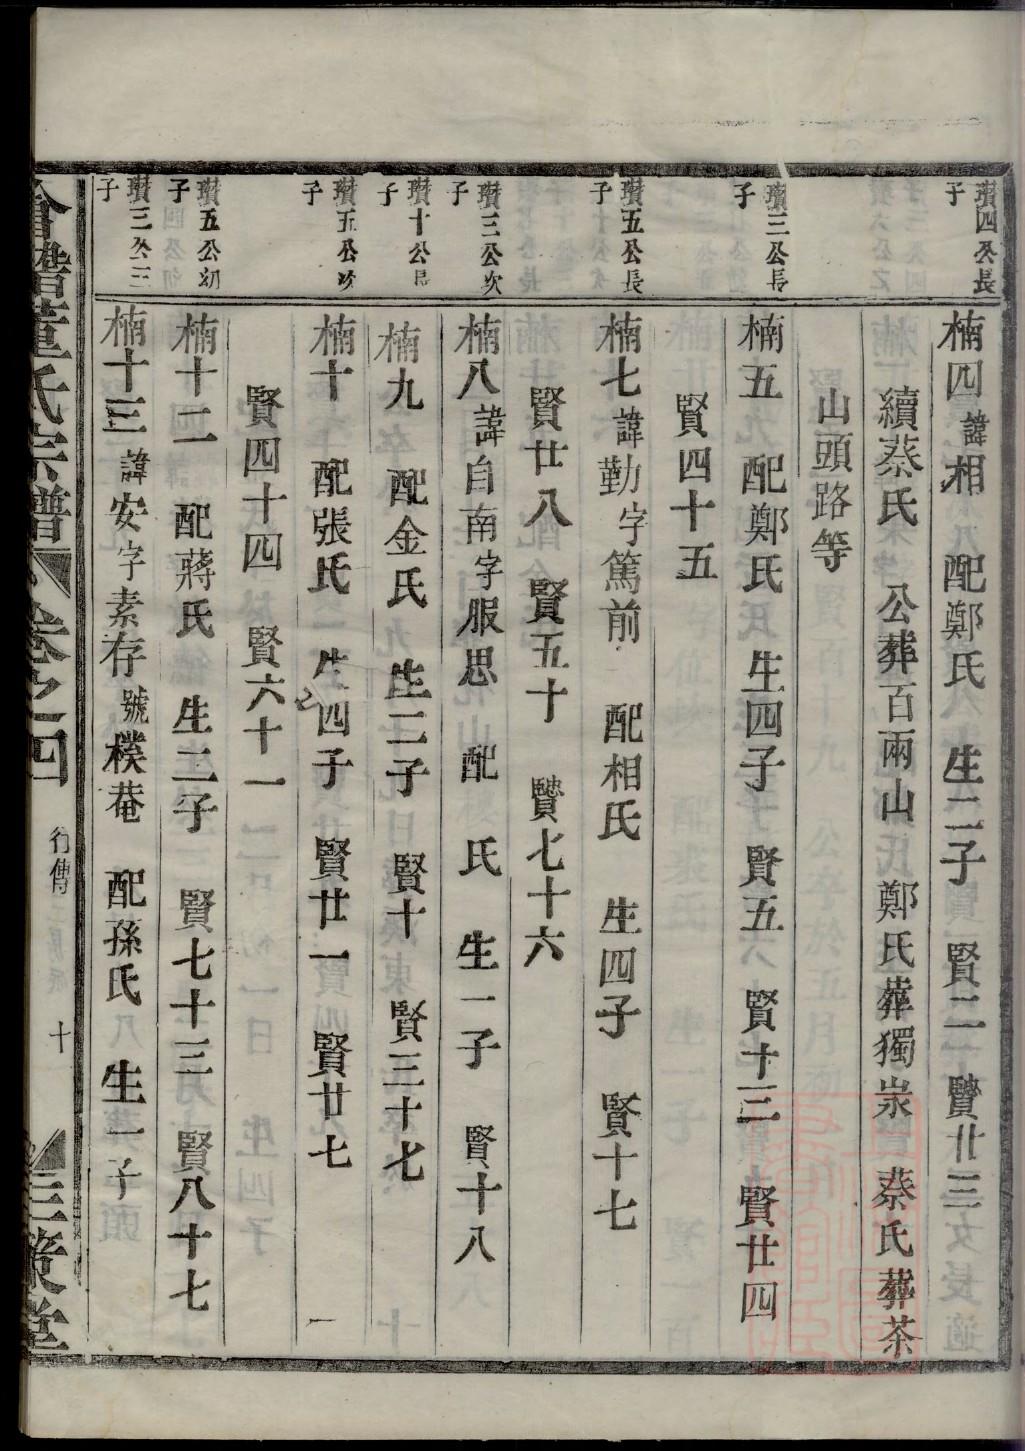 瓚四公長子
楠四 諱相 配鄭氏 生二子 賢二 賢廿三
續蔡氏 公葬百兩山 鄭氏葬獨冢 蔡氏葬茶
山頭路等
瓚三公長子
楠五 配鄭氏 生四子 賢五 賢十三 賢廿四
賢四十五
瓚五公長子
楠七 諱勤 字篤前 配相氏 生四子 賢十七
賢廿八 賢五十 賢七十六
瓚三公次子
楠八 諱自南 字服思 配 氏 生一子 賢十八
瓚十公長子
楠九 配金氏 生二子 賢十 賢三十七
瓚五公次子
楠十 配張氏 生四子 賢廿一 賢廿七
賢四十四 賢六十一
瓚五公幼子
楠十二 配蔣氏 生二子 賢七十三 賢八十七
瓚三公三子
楠十三 諱安 字素存 號樸菴 配孫氏 生一子
會稽董氏宗譜 卷之四 行傳 十 三策堂